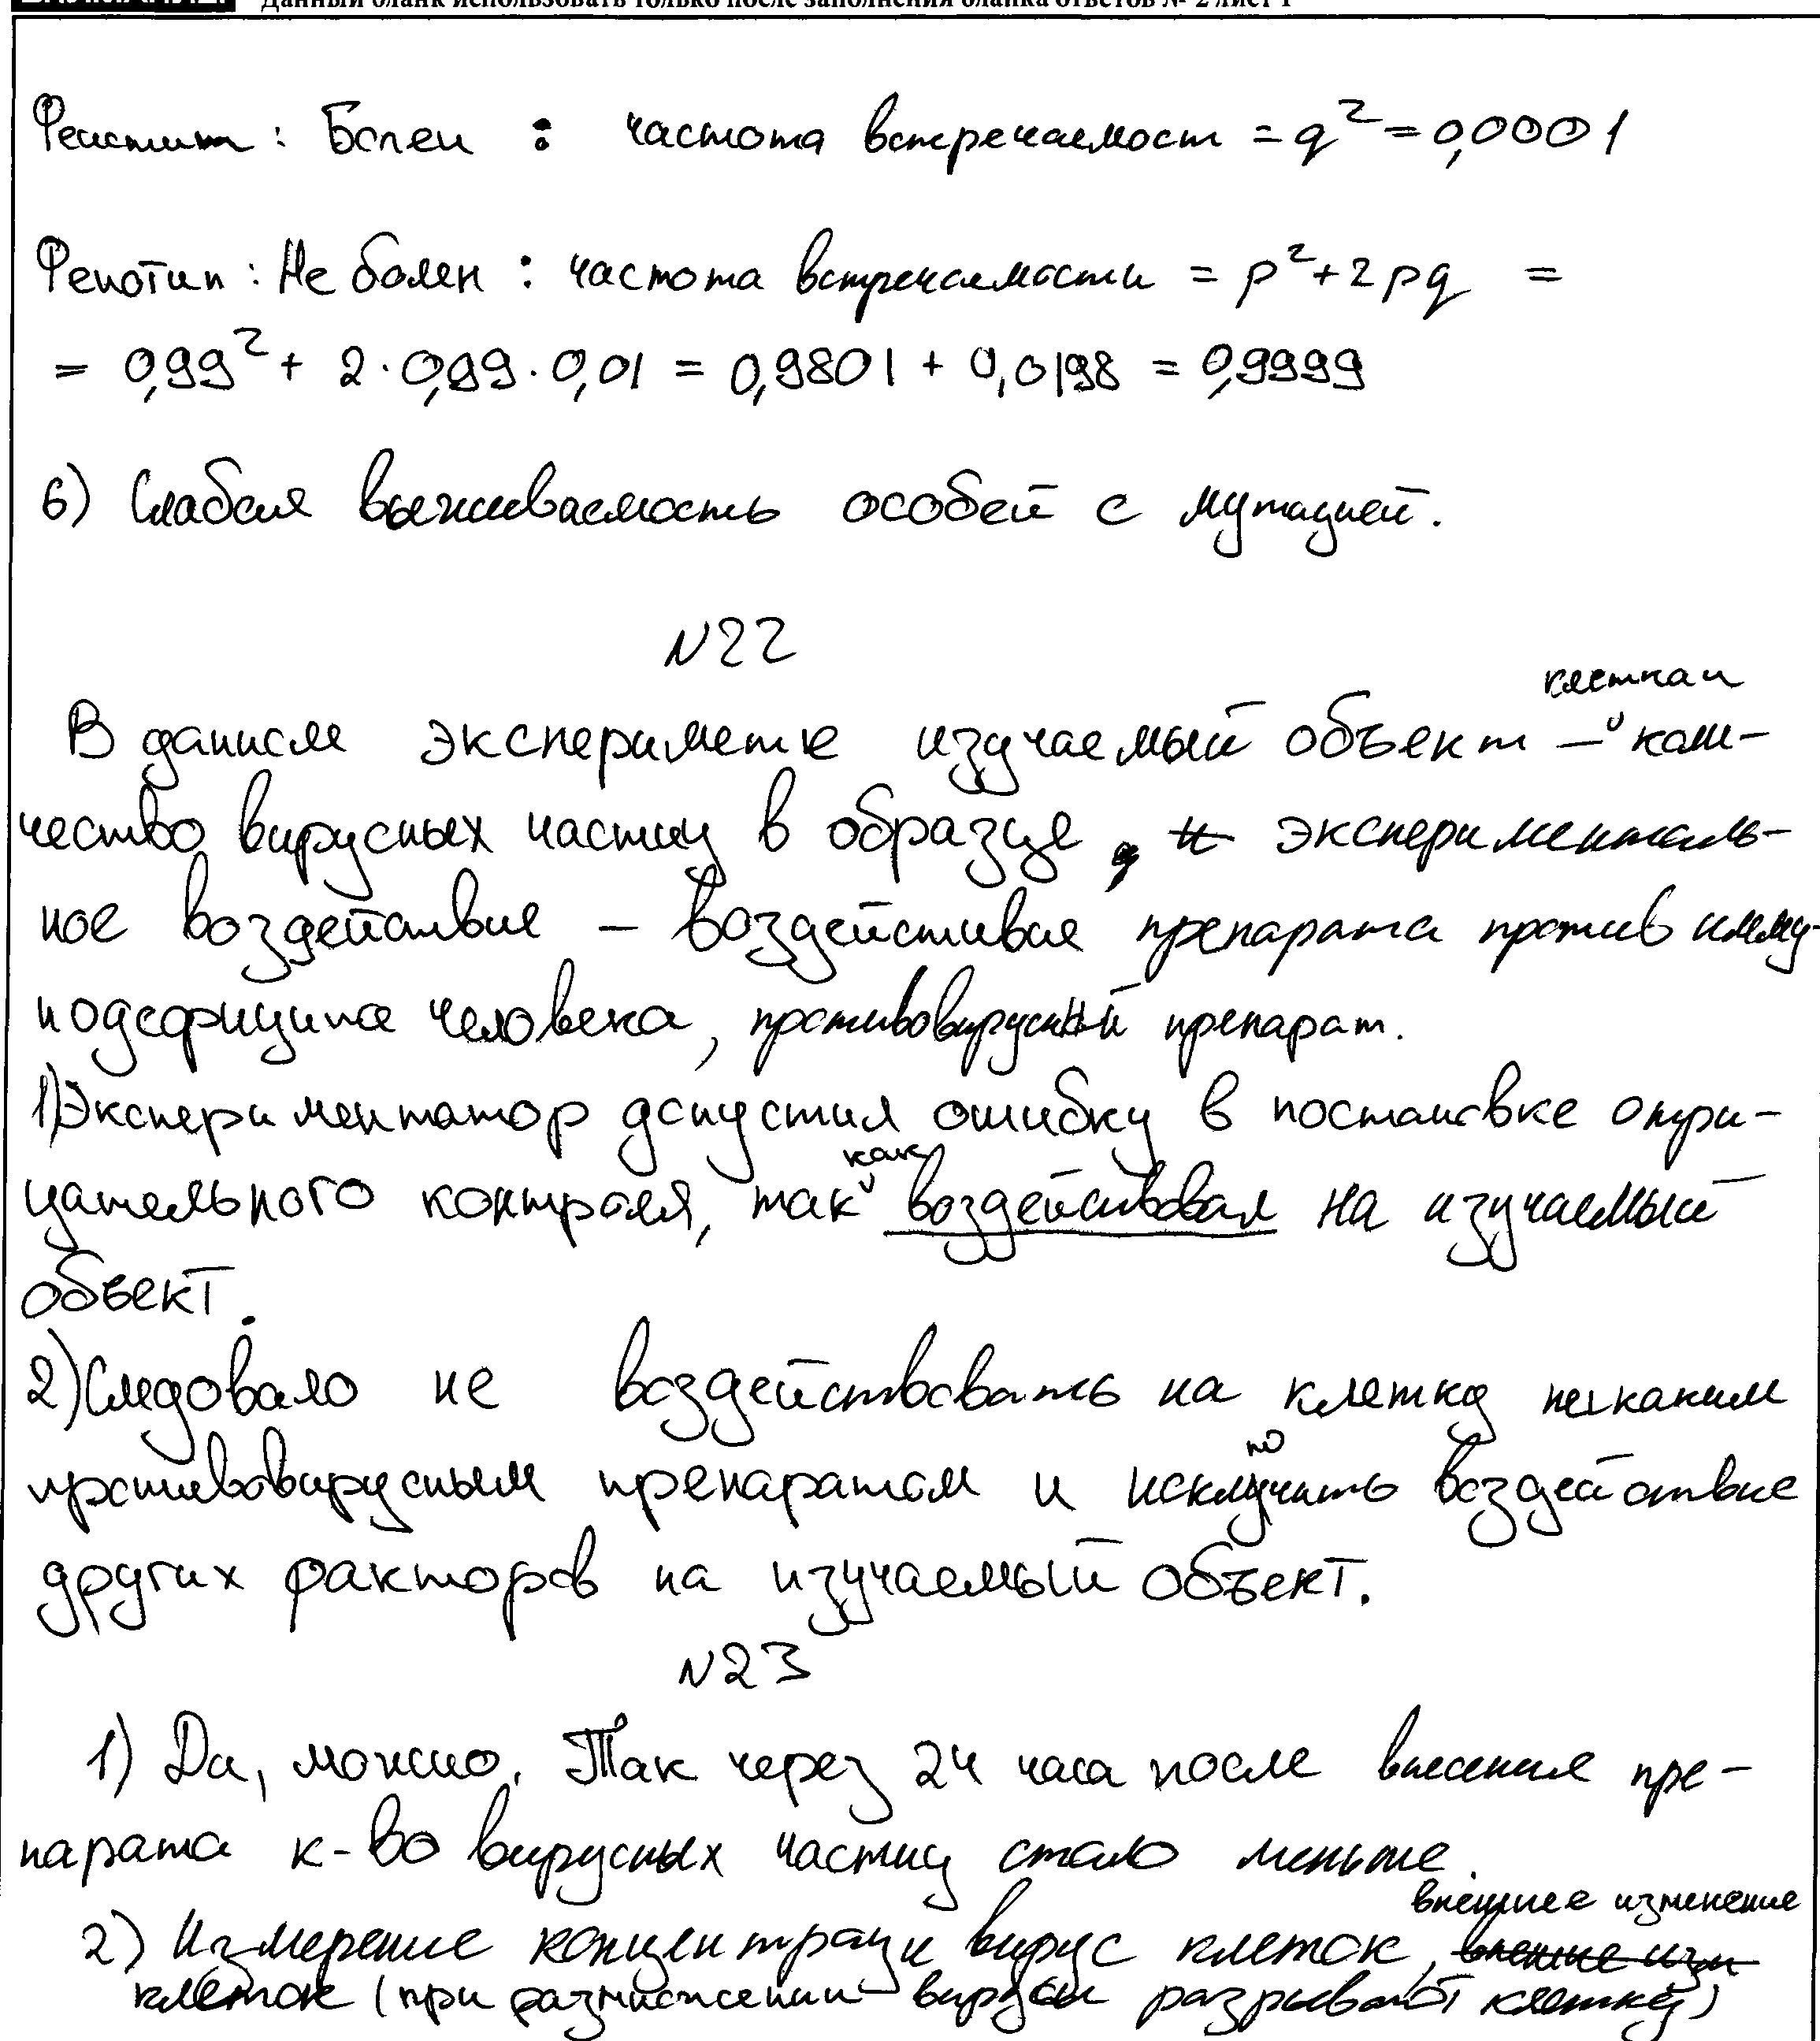 Данный бланк использовать только после заполнения бланка ответов № 2 лист 1
Фенотип : Болен : частота встречаемост = q² = 0,0001
Фенотип : Не болен : частота встречаемости = p² + 2pq =
= 0,99² + 2 · 0,99 · 0,01 = 0,9801 + 0,0198 = 0,9999
6) Слабая выживаемость особей с мутацией.
N22
клетка и
В данном эксперименте изучаемый объект – коли-
чество вирусных частиц в образце, эксперименталь-
ное воздействие – воздействие препарата против имму-
нодефицита человека, противовирусный препарат.
1) Экспериментатор допустил ошибку в постановке отри-
цательного контроля, так как воздействовал на изучаемый
объект.
2) Следовало не воздействовать на клетку никаким
противовирусным препаратом и исключить воздействие
других факторов на изучаемый объект.
N23
1) Да, можно. Так через 24 часа после внесения пре-
парата к-во вирусных частиц стало меньше.
внешнее изменение
2) Измерение концентраци вирус клеток,
клеток (при размножении вирусы разрывают клетку)